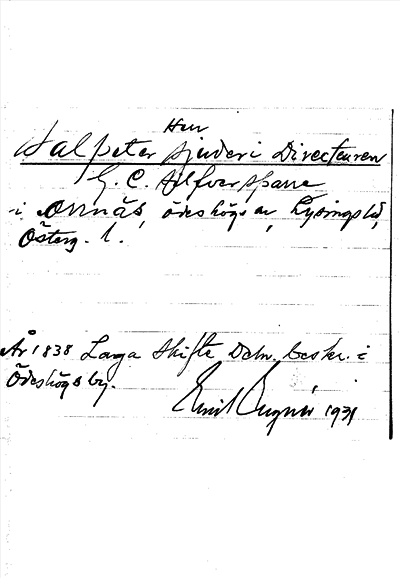 Herr
Salpeter sjuderi Directeuren
G. C. Silfversparre
i Onnäs, Ödeshögs sn, Lysings hd,
Österg. l.
År 1838 Laga Skifte Deln. beskr. i
Ödeshögs by.
Emil 1931